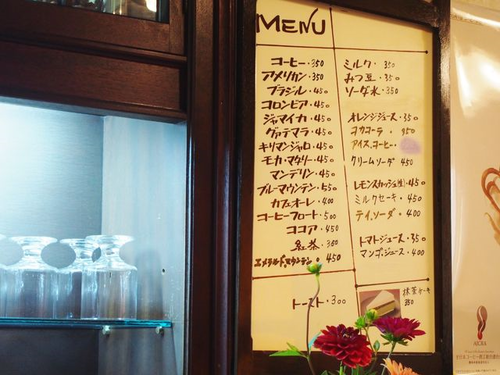 MENU
コーヒー・350
アメリカン・350
ブラジル・450
コロンビア・450
ジャマイカ・450
グァテマラ・450
キリマンジャロ・450
モカ・マタリー・450
マンデリン・450
ブルーマウンテン・550
カフェオーレ・400
コーヒーフロート・500
ココア・450
紅茶・350
エメラルドマウンテン・450
トースト・300
ミルク・350
みつ豆・350
ソーダ水・350
オレンジジュース・350
コカコーラ・350
アイスコーヒー・
クリームソーダ 450
レモンスカッシュ(生)・450
ミルクセーキ・450
ティ、ソーダ・400
トマトジュース・350
マンゴジュース・400
抹茶ケーキ
350